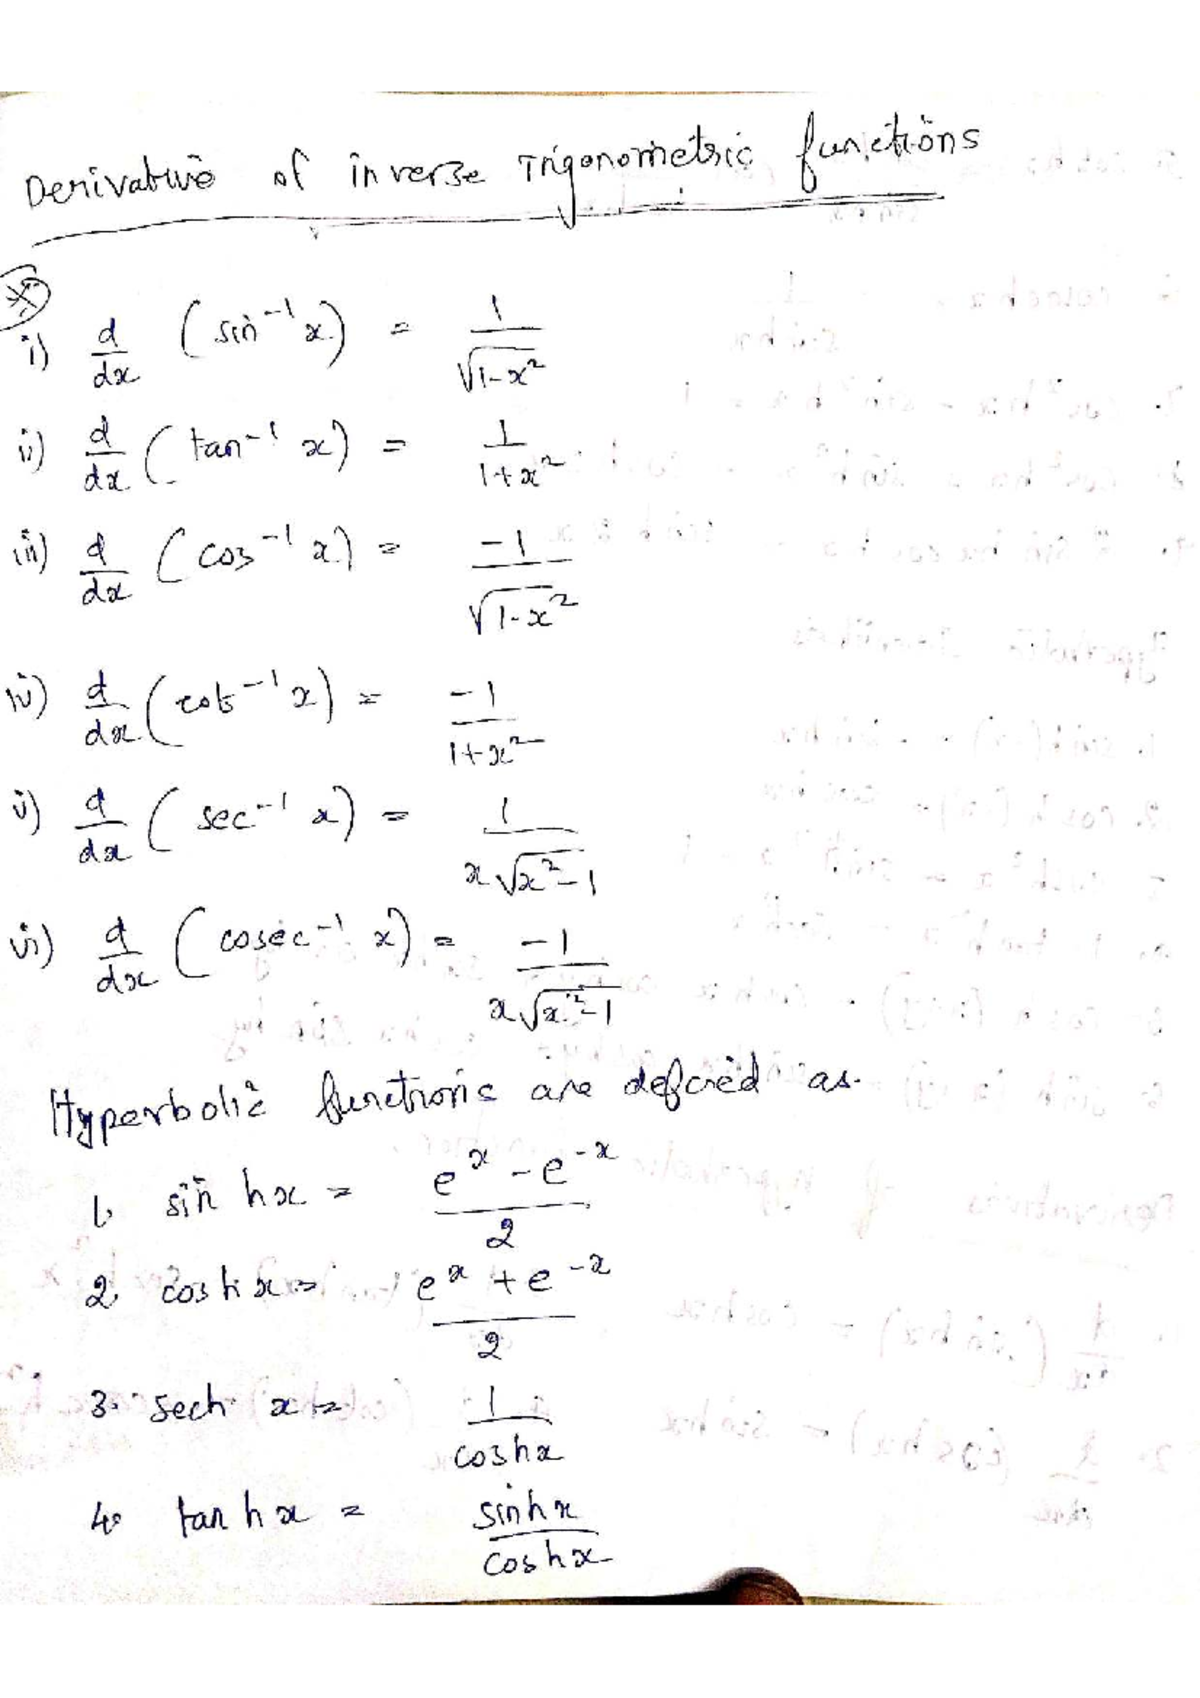 Derivative of inverse Trigonometric functions
i) d/dx (sin⁻¹ x) = 1/√(1-x²)
ii) d/dx (tan⁻¹ x) = 1/(1+x²)
iii) d/dx (cos⁻¹ x) = -1/√(1-x²)
iv) d/dx (cot⁻¹ x) = -1/(1+x²)
v) d/dx (sec⁻¹ x) = 1/(x√(x²-1))
vi) d/dx (cosec⁻¹ x) = -1/(x√(x²-1))
Hyperbolic functions are defined as.
1. sin hx = (eˣ - e⁻ˣ)/2
2. cosh x = (eˣ + e⁻ˣ)/2
3. sech x = 1/coshx
4. tan hx = sinhx/coshx